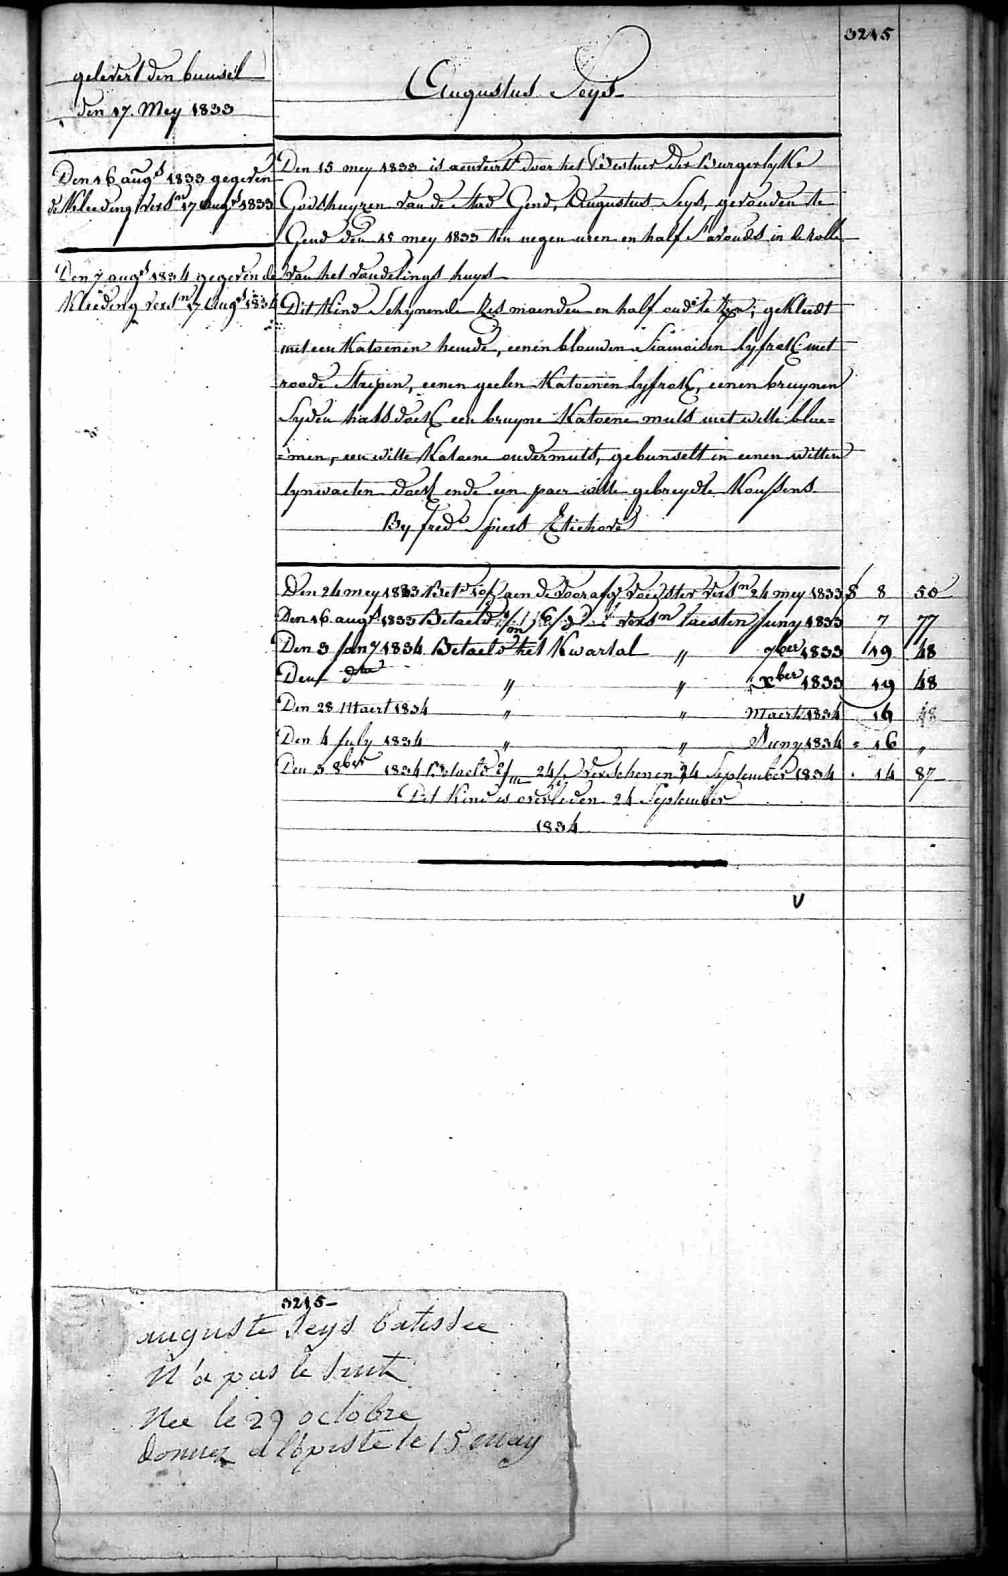 3215
gelevert den bunsel
den 17. Mey 1833
Augustus Seys
Den 16 augt 1833 gegeven
de Kleeding versn 17 Augt 1833
Den 7 augt 1834 gegeven de
Kleeding versn 17 Augt 1834
Den 15 mey 1833 is aenveirt door het Bestuer der Burgerlyke
Godshuyzen van de Stad Gend, Augustus Seys, gevonden te
Gend den 15 mey 1833 ten negen uren en half s'avonds in de rolle
van het vondelings huys
Dit Kind Schynende Zes maenden en half oud te zyn, gekleedt
met een Katoenen hemde, eenen blauwen Siamoisen lyfrok met
roode Strepen, eenen geelen Katoenen lyfrok, eenen bruynen
Syden halsdoek een bruyne Katoene muts met witte bloe=
=men, een witte Katoene ondermuts, gebunselt in eenen witten
lynwaeten doek ende een paer witte gebreyde Koussens
By fredk Spiers Etichove
Den 24 mey 1833 Bet. aen de voorafge voester versn 24 mey 1833 8 50
Den 16 augt 1833 Betaeld versn laesten Juny 1833 7 77
Den 3 Jany 1834 Betaeld het Kwartal " 7ber 1833 19 48
Den dto " " Xber 1833 19 48
Den 28 Maert 1834 " " Maert 1834 16 48
Den 4 July 1834 " " Juny 1834 16 "
Den 3 8ber 1834 Betaeld verschenen 24 September 1834 14 87
Dit Kind is overleden 24 September
1834
V
3215
auguste Seys Batissee
n'a pas le Sint
Nee le 29 octobre
donner a l'opiste le 15 may